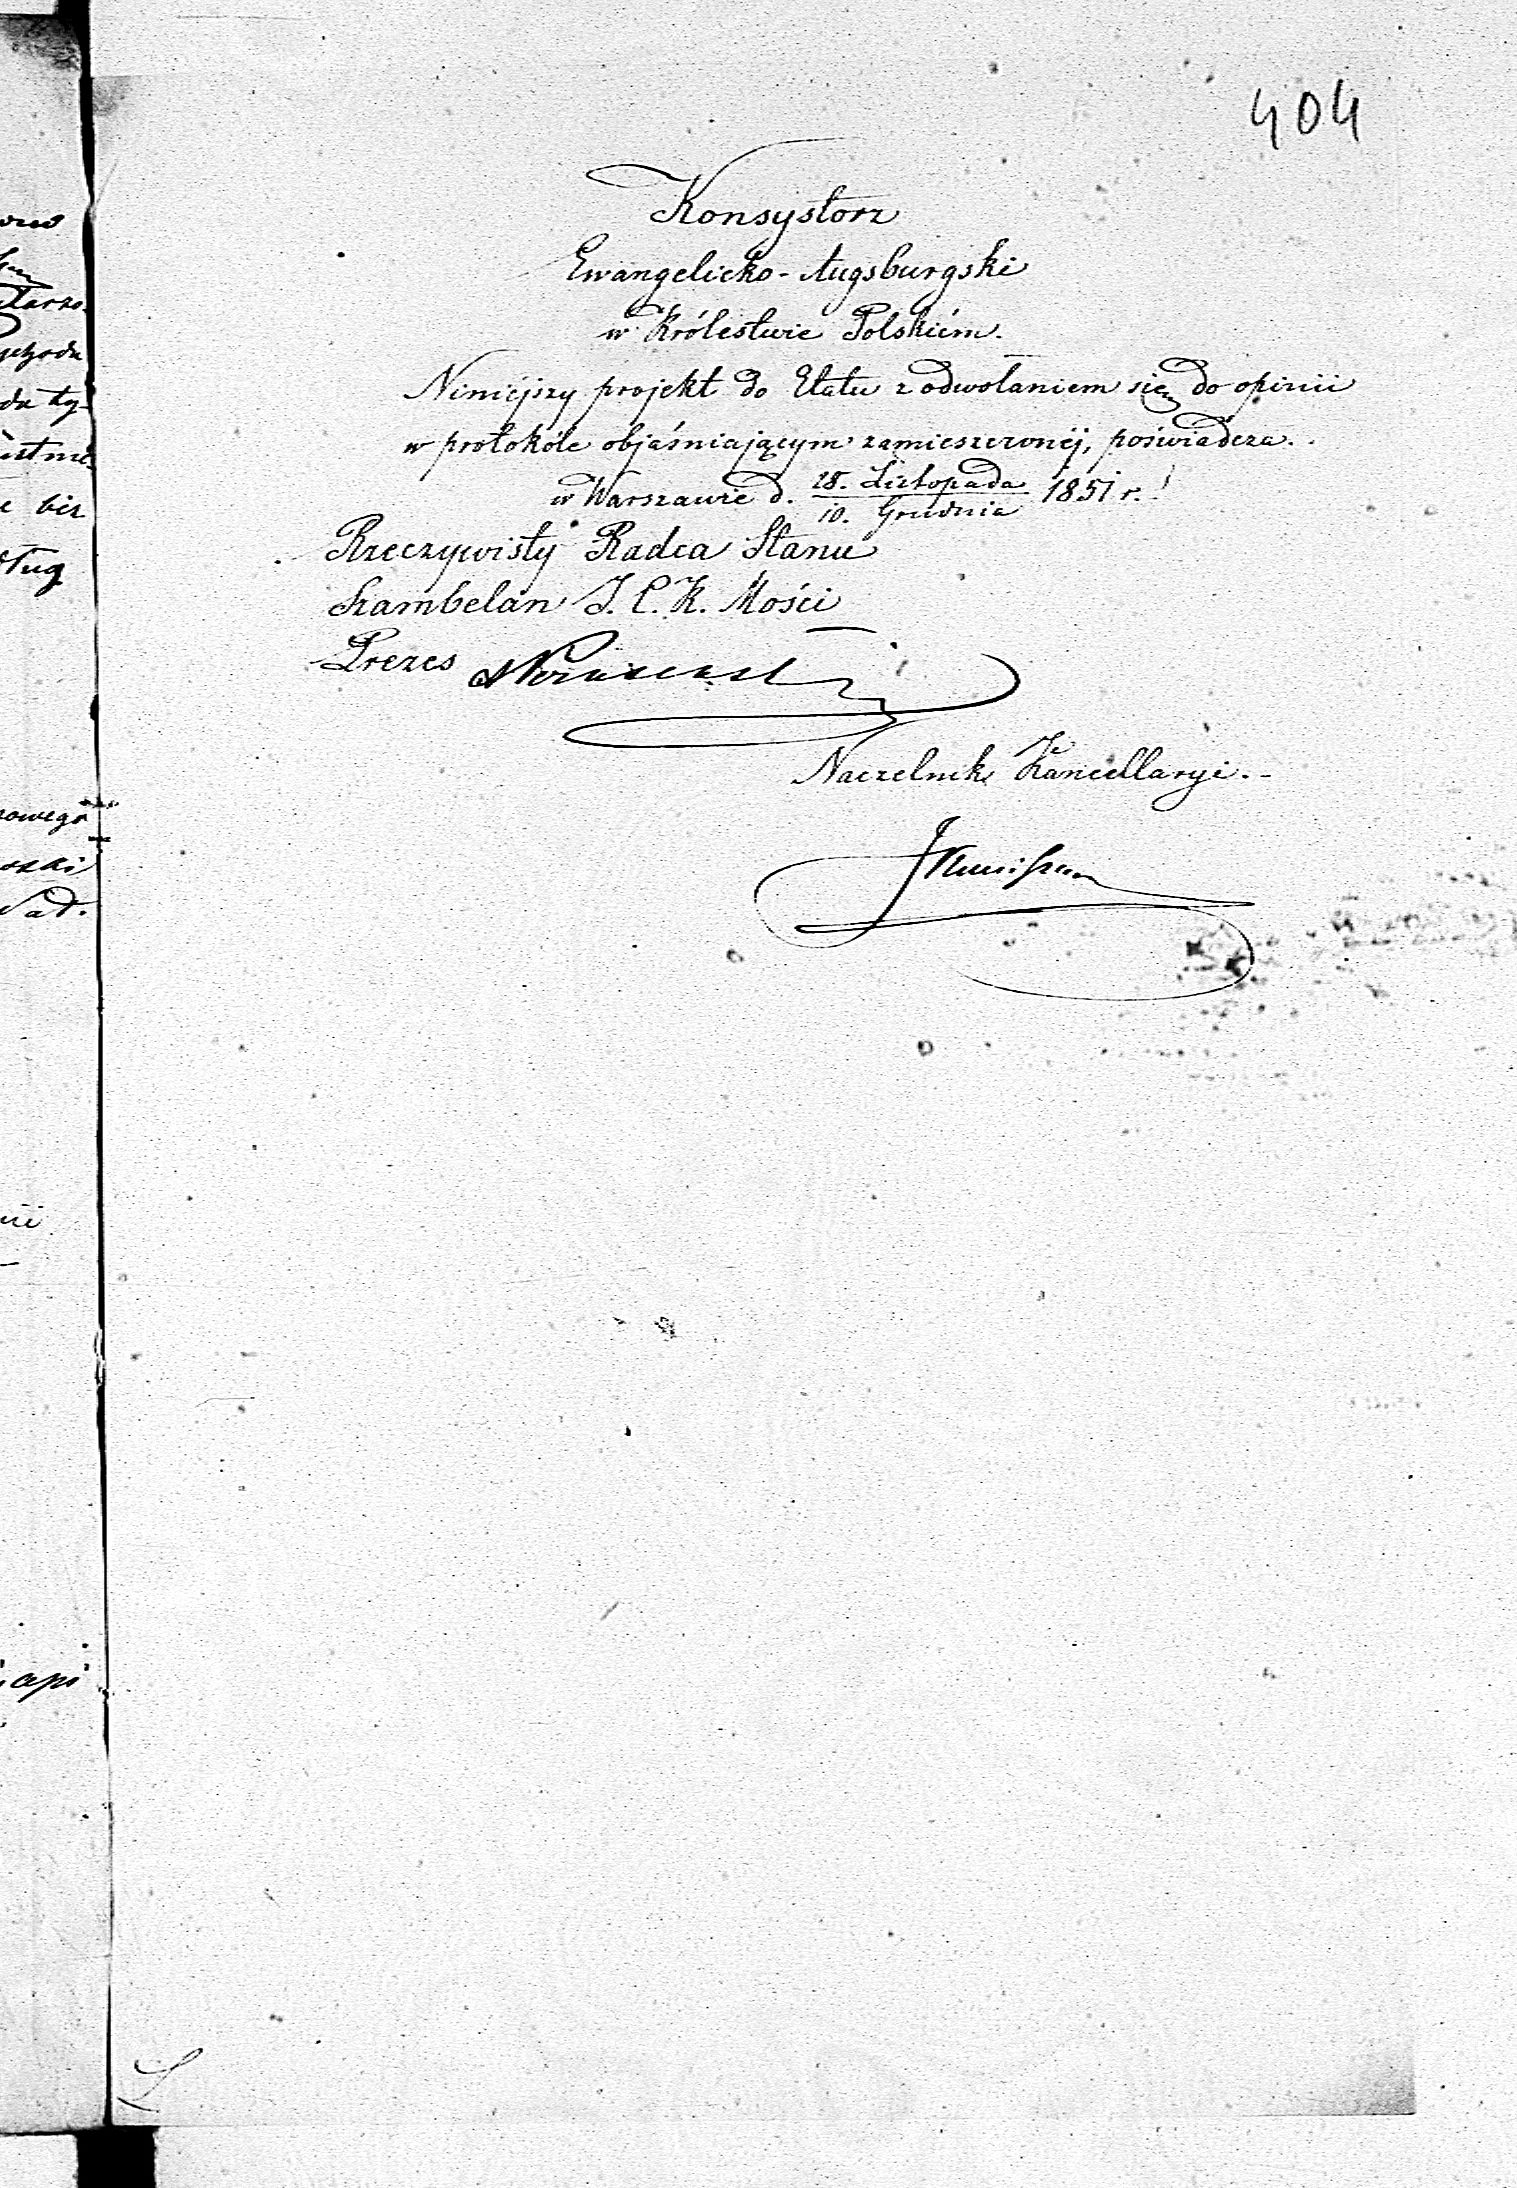 404
Konsystorz
Ewangelicko-Augsburgski
w Królestwie Polskiém.
Niniéjszy projekt do Etatu z odwołaniem się do opinii
w protokóle objaśniającym zamieszczonéj, poświadcza.
w Warszawie d. 28. Listopada / 10. Grudnia 1851 r.
Rzeczywisty Radca Stanu
Szambelan J. C. K. Mości
Prezes
Naczelnik Kancellaryi.